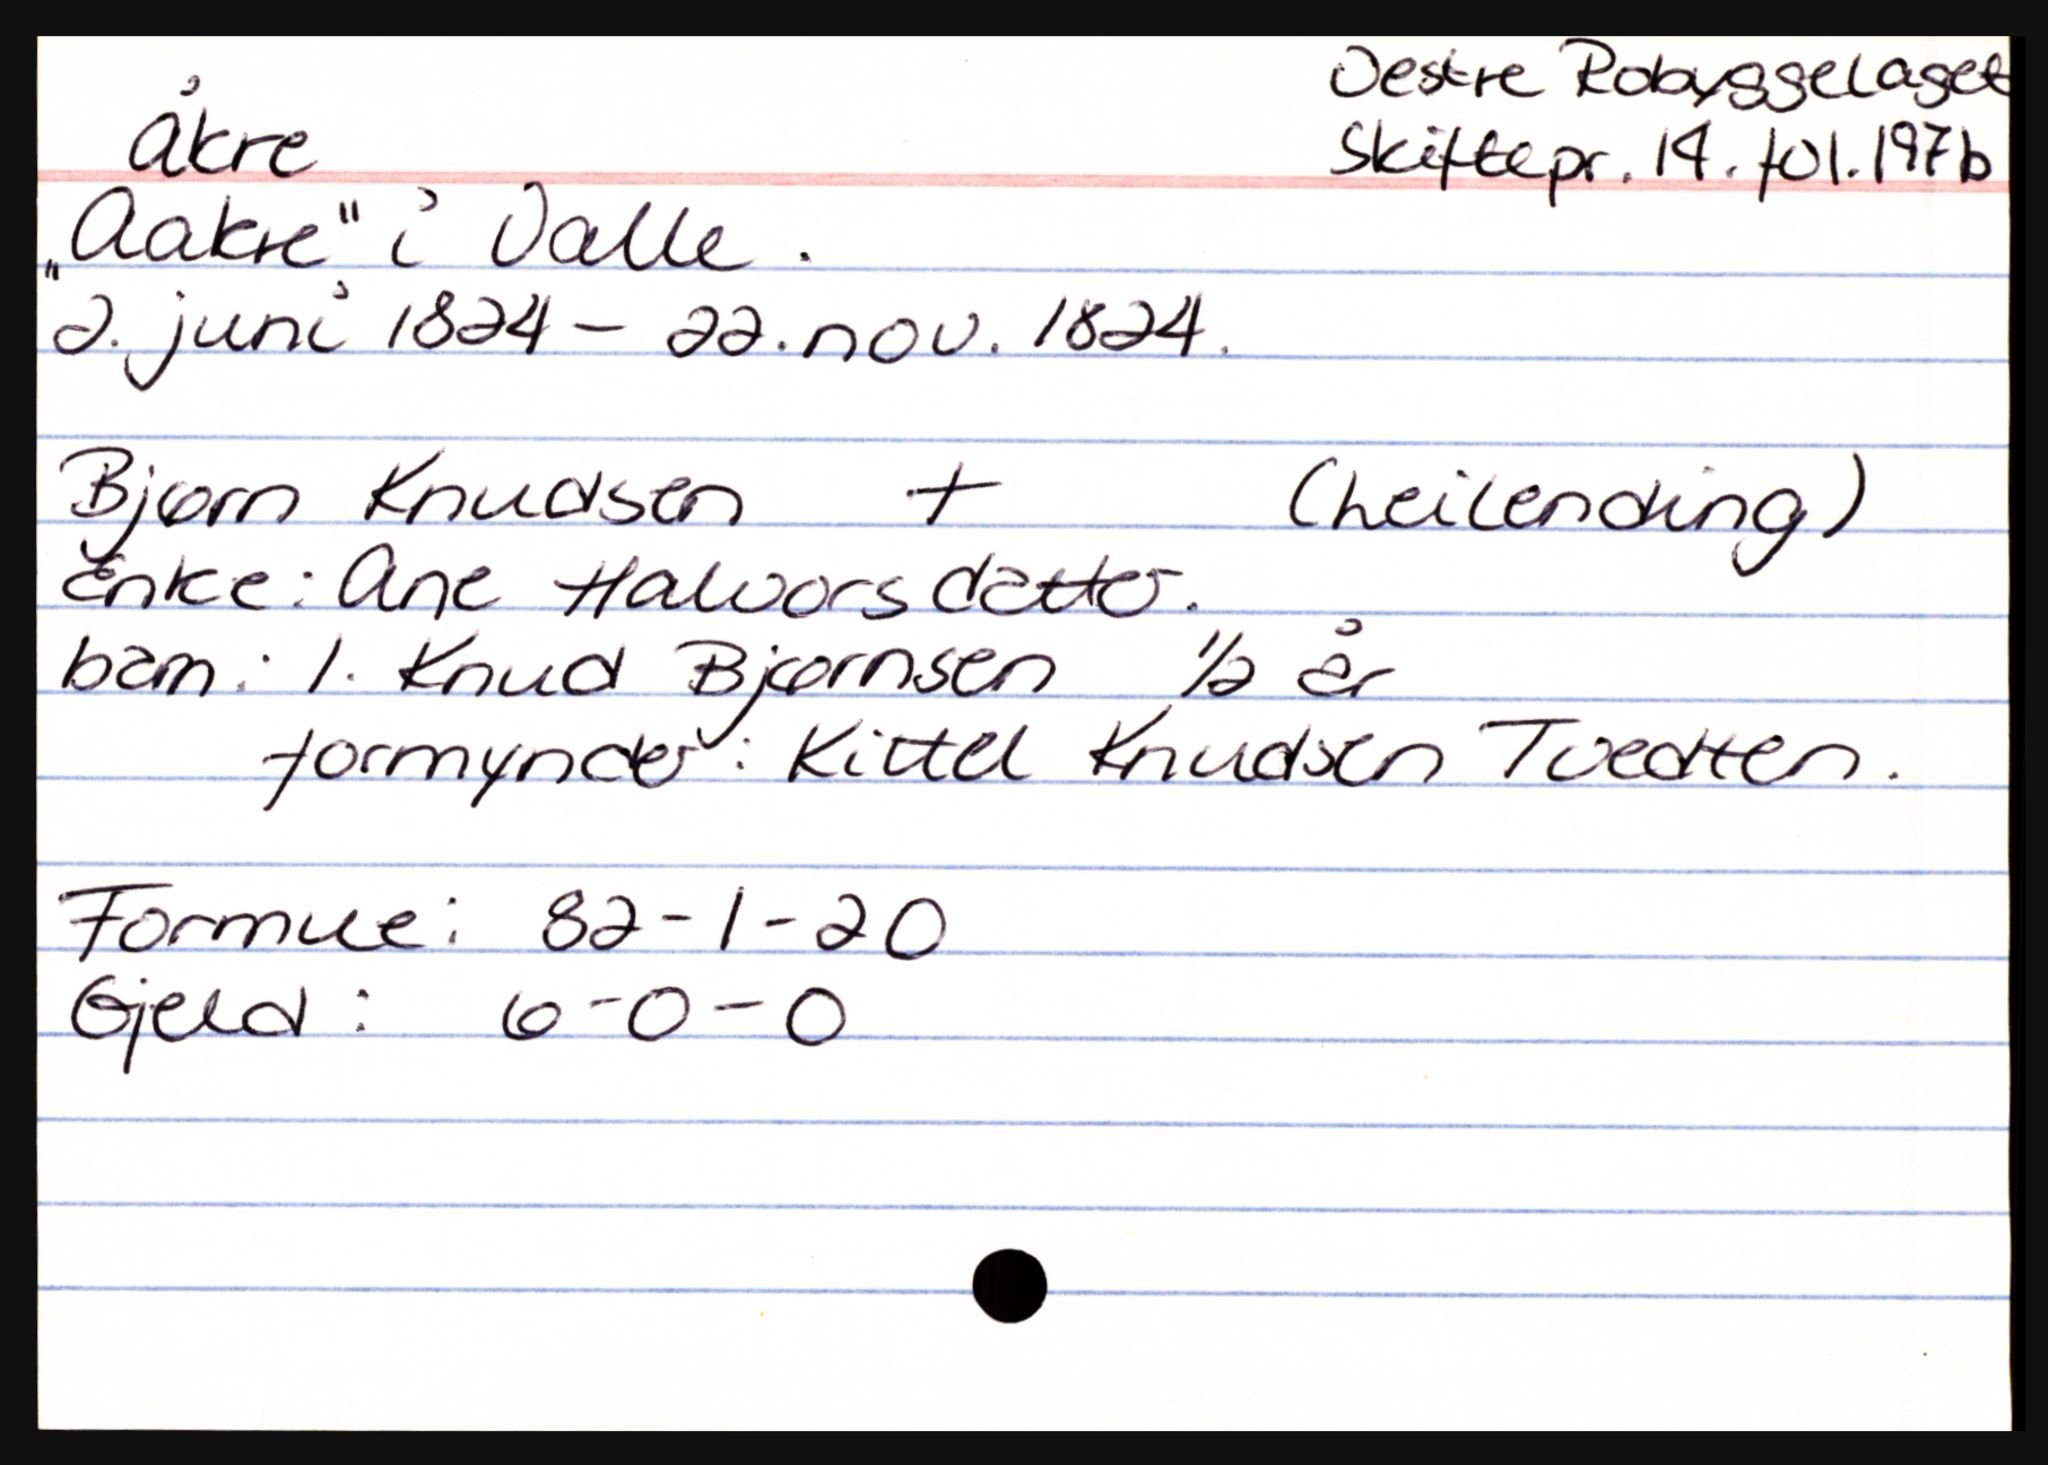 Vestre Robyggelaget
Åkre
Skiftepr. 14. fol. 197b
"Aakre" i Valle.
2. juni 1824 - 22. nov. 1824.
Bjørn Knudsen + (leilending)
Enke: Ane Halvorsdatter.
barn: 1. Knud Bjørnsen 1/2 år
formynder: Kittel Knudsen Tvedten.
Formue: 82-1-20
Gjeld: 6-0-0